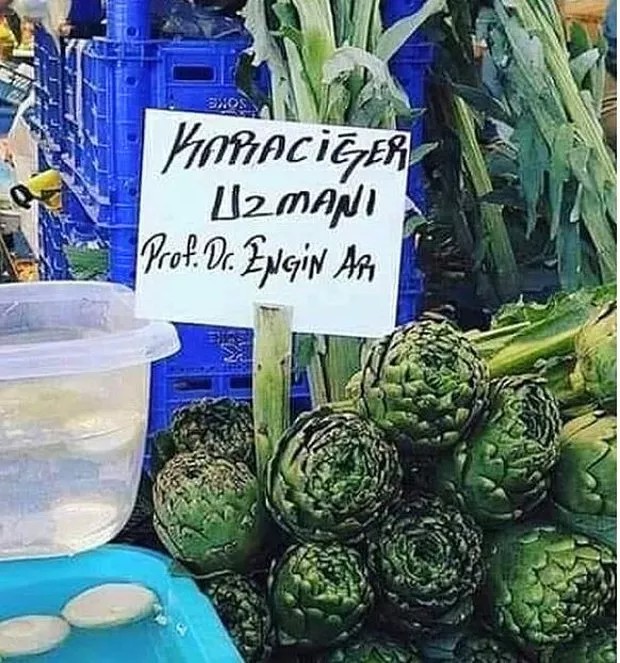 KARACİĞER
UZMANI
Prof. Dr. ENGİN AR